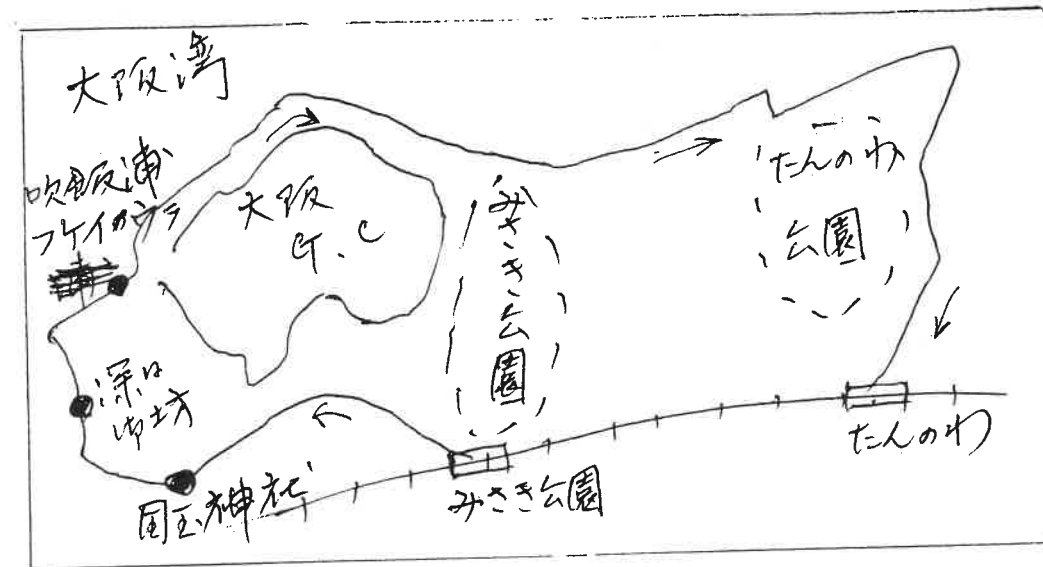 大阪湾
吹飯浦
フケイガウラ
大阪
G.C
みさき公園
たんのわ
公園
深日
御坊
国玉神社
みさき公園
たんのわ